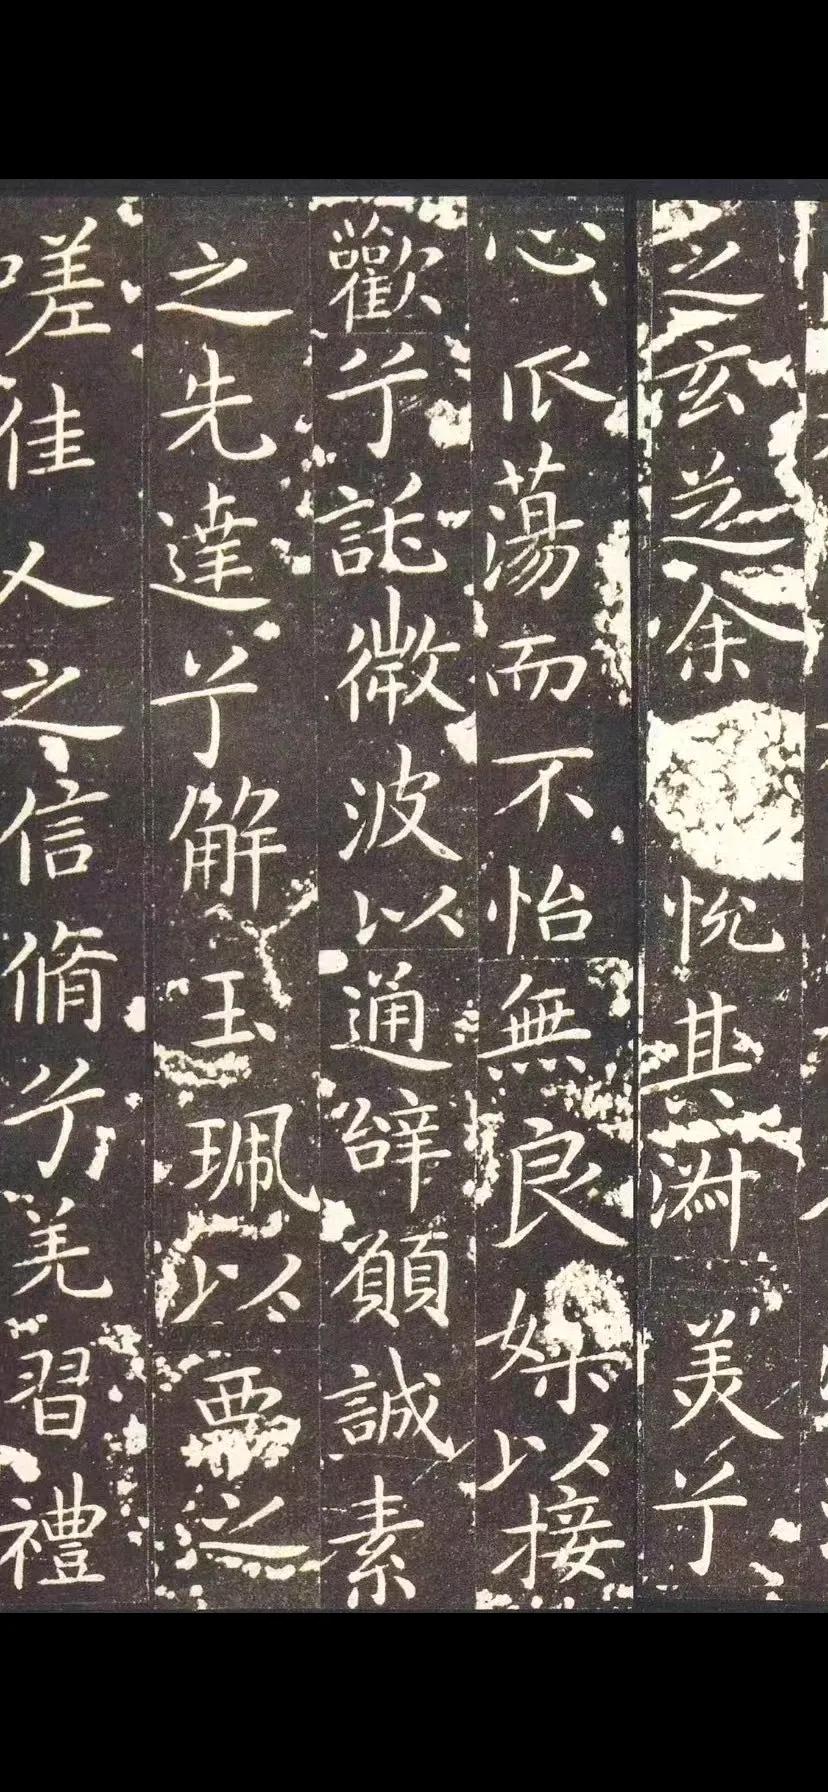 之玄芝余悅其淑美兮
心蕩而不怡無良媒以接
歡兮託微波以通辭願誠素
之先達兮解玉珮以要之
嗟佳人之信脩兮羌習禮